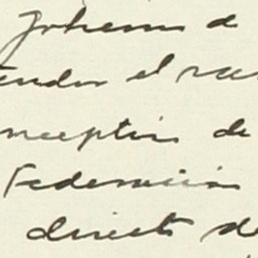 Gobierno de
tender el
nceptio de
Federación
directo de